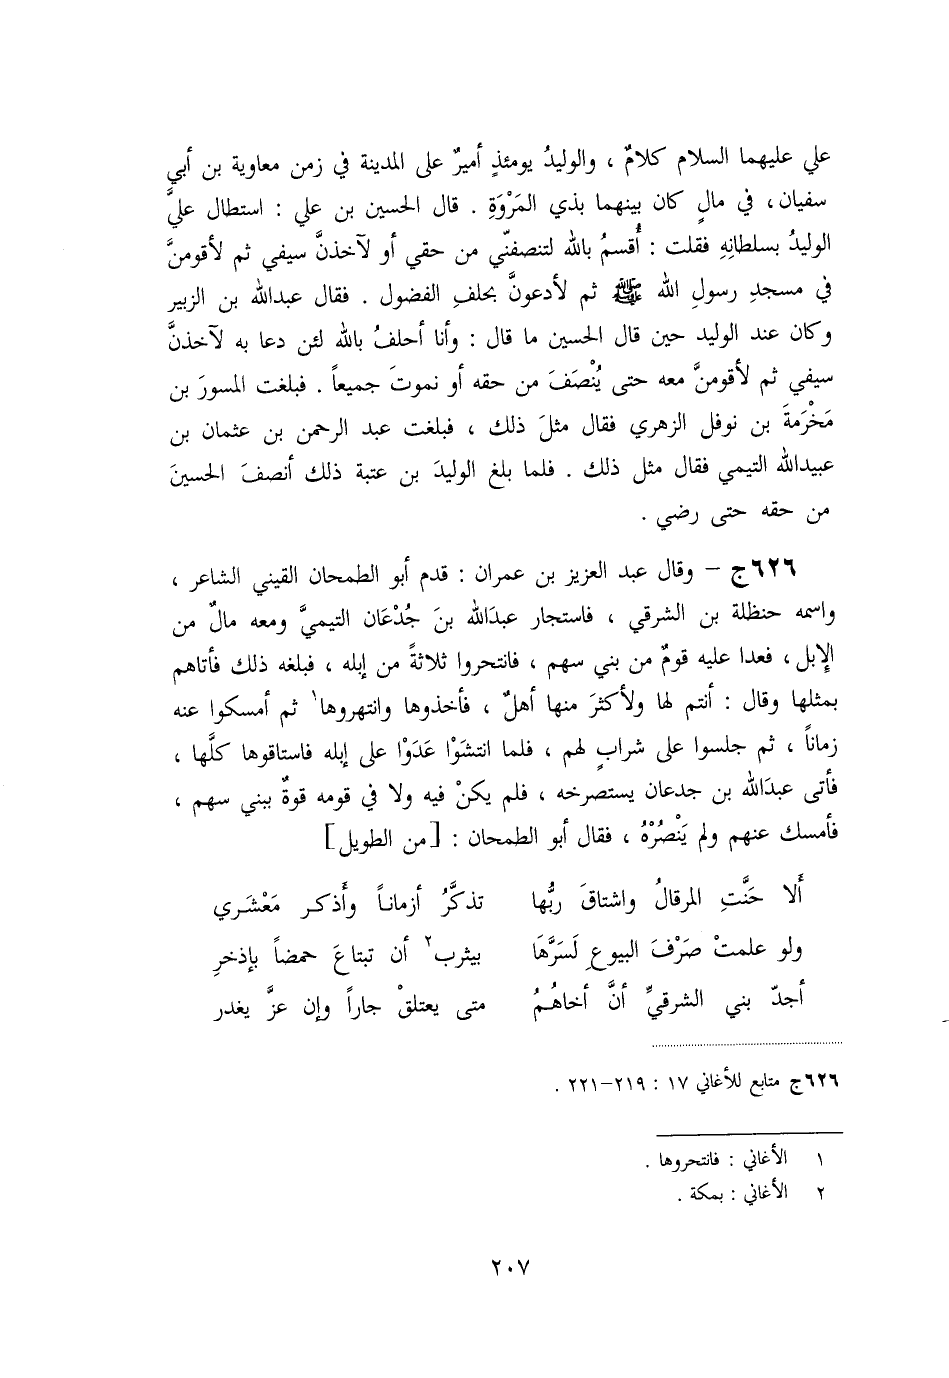 علي عليهما السلام كلامٌ ، والوليدُ يومئذٍ أميرٌ على المدينة في زمن معاوية بن أبي
سفيان ، في مالٍ كان بينهما بذي المَرْوَةِ . قال الحسين بن علي : استطال عليَّ
الوليدُ بسلطانِهِ فقلت : أُقسمُ بالله لتنصفنّي من حقي أو لآخذنَّ سيفي ثم لأقومنَّ
في مسجدِ رسولِ الله ﷺ ثم لأدعونَّ بحلفِ الفضول . فقال عبدالله بن الزبير
وكان عند الوليد حين قال الحسين ما قال : وأنا أحلفُ بالله لئن دعا به لآخذنَّ
سيفي ثم لأقومنَّ معه حتى يُنْصَفَ من حقه أو نموتَ جميعاً . فبلغت المسورَ بن
مَخْرَمةَ بن نوفل الزهري فقال مثلَ ذلك ، فبلغت عبد الرحمن بن عثمان بن
عبيدالله التيمي فقال مثل ذلك . فلما بلغ الوليدَ بن عتبة ذلك أنصفَ الحسينَ
من حقه حتى رضي .
٦٢٦ج – وقال عبد العزيز بن عمران : قدم أبو الطمحان القيني الشاعر ،
واسمه حنظلة بن الشرقي ، فاستجار عبدَالله بنَ جُدْعَان التيميَّ ومعه مالٌ من
الإبل ، فعدا عليه قومٌ من بني سهم ، فانتحروا ثلاثةً من إبله ، فبلغه ذلك فأتاهم
بمثلها وقال : أنتم لها ولأكثرَ منها أهلٌ ، فأخذوها وانتهروها١ ثم أمسكوا عنه
زماناً ، ثم جلسوا على شرابٍ لهم ، فلما انتشَوْا عَدَوْا على إبله فاستاقوها كلَّها ،
فأتى عبدَالله بن جدعان يستصرخه ، فلم يكنْ فيه ولا في قومه قوةٌ ببني سهم ،
فأمسك عنهم ولم يَنْصُرْهُ ، فقال أبو الطمحان : [من الطويل]
أَلا حَنَّتِ المرقالُ واشتاقَ ربُّها تذكَّرُ أزماناً وأَذكر مَعْشَري
ولو علمتْ صَرْفَ البيوعِ لَسَرَّهَا بيثرب٢ أن تبتاعَ حمضاً بإذخرِ
أجدّ بني الشرقيِّ أنَّ أخاهُمُ متى يعتلقْ جاراً وإن عزَّ يغدر
٦٢٦ج متابع للأغاني ١٧ : ٢١٩–٢٢١ .
١ الأغاني : فانتحروها .
٢ الأغاني : بمكة .
٢٠٧